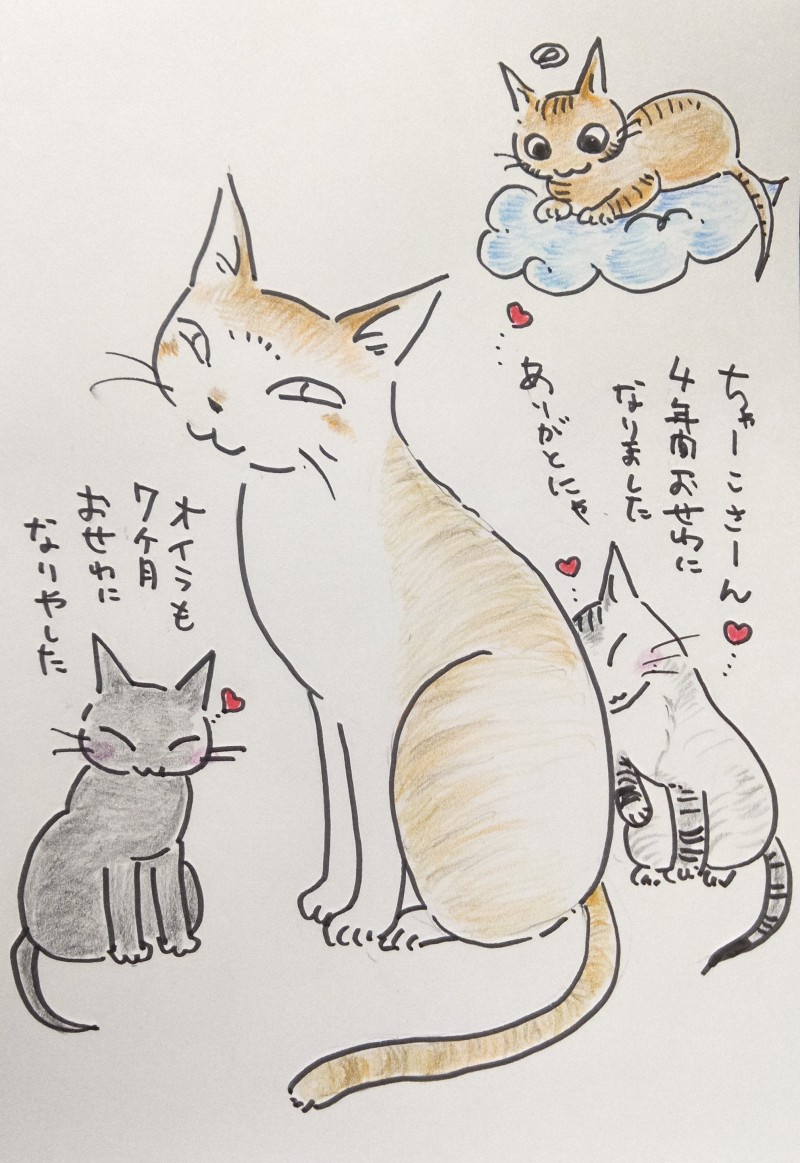 ちゃーこさーん
4年間おせわに
なりました
ありがとにゃ
オイラも
7ヶ月
おせわに
なりやした